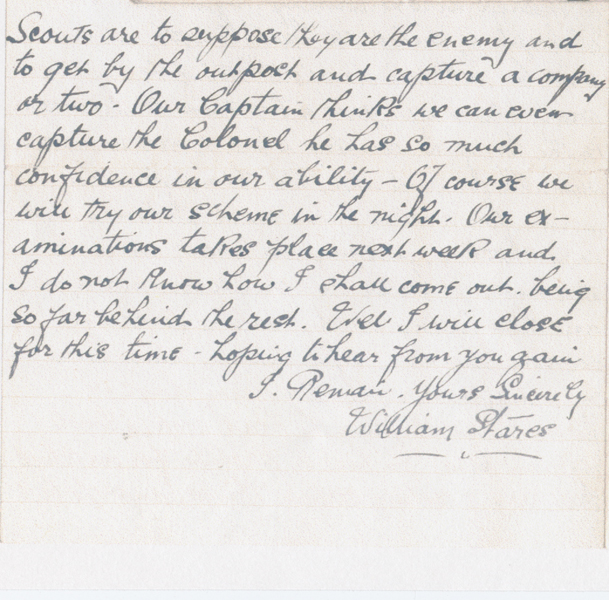 Scouts are to suppose they are the enemy and
to get by the outpost and capture a company
or two - Our Captain thinks we can even
capture the Colonel he has so much
confidence in our ability - Of course we
will try our scheme in the night. Our ex-
aminations takes place next week and
I do not know how I shall come out. being
so far behind the rest. Well I will close
for this time - hoping to hear from you again
I. Remain. Yours Sincerely
William Stares